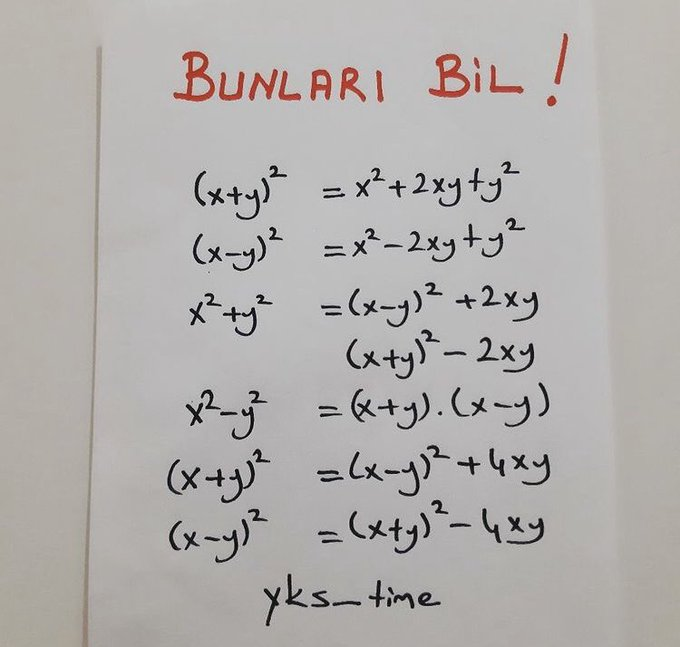 BUNLARI BİL!
(x+y)² = x²+2xy+y²
(x-y)² = x²-2xy+y²
x²+y² = (x-y)²+2xy
(x+y)²-2xy
x²-y² = (x+y).(x-y)
(x+y)² = (x-y)²+4xy
(x-y)² = (x+y)²-4xy
yks_time